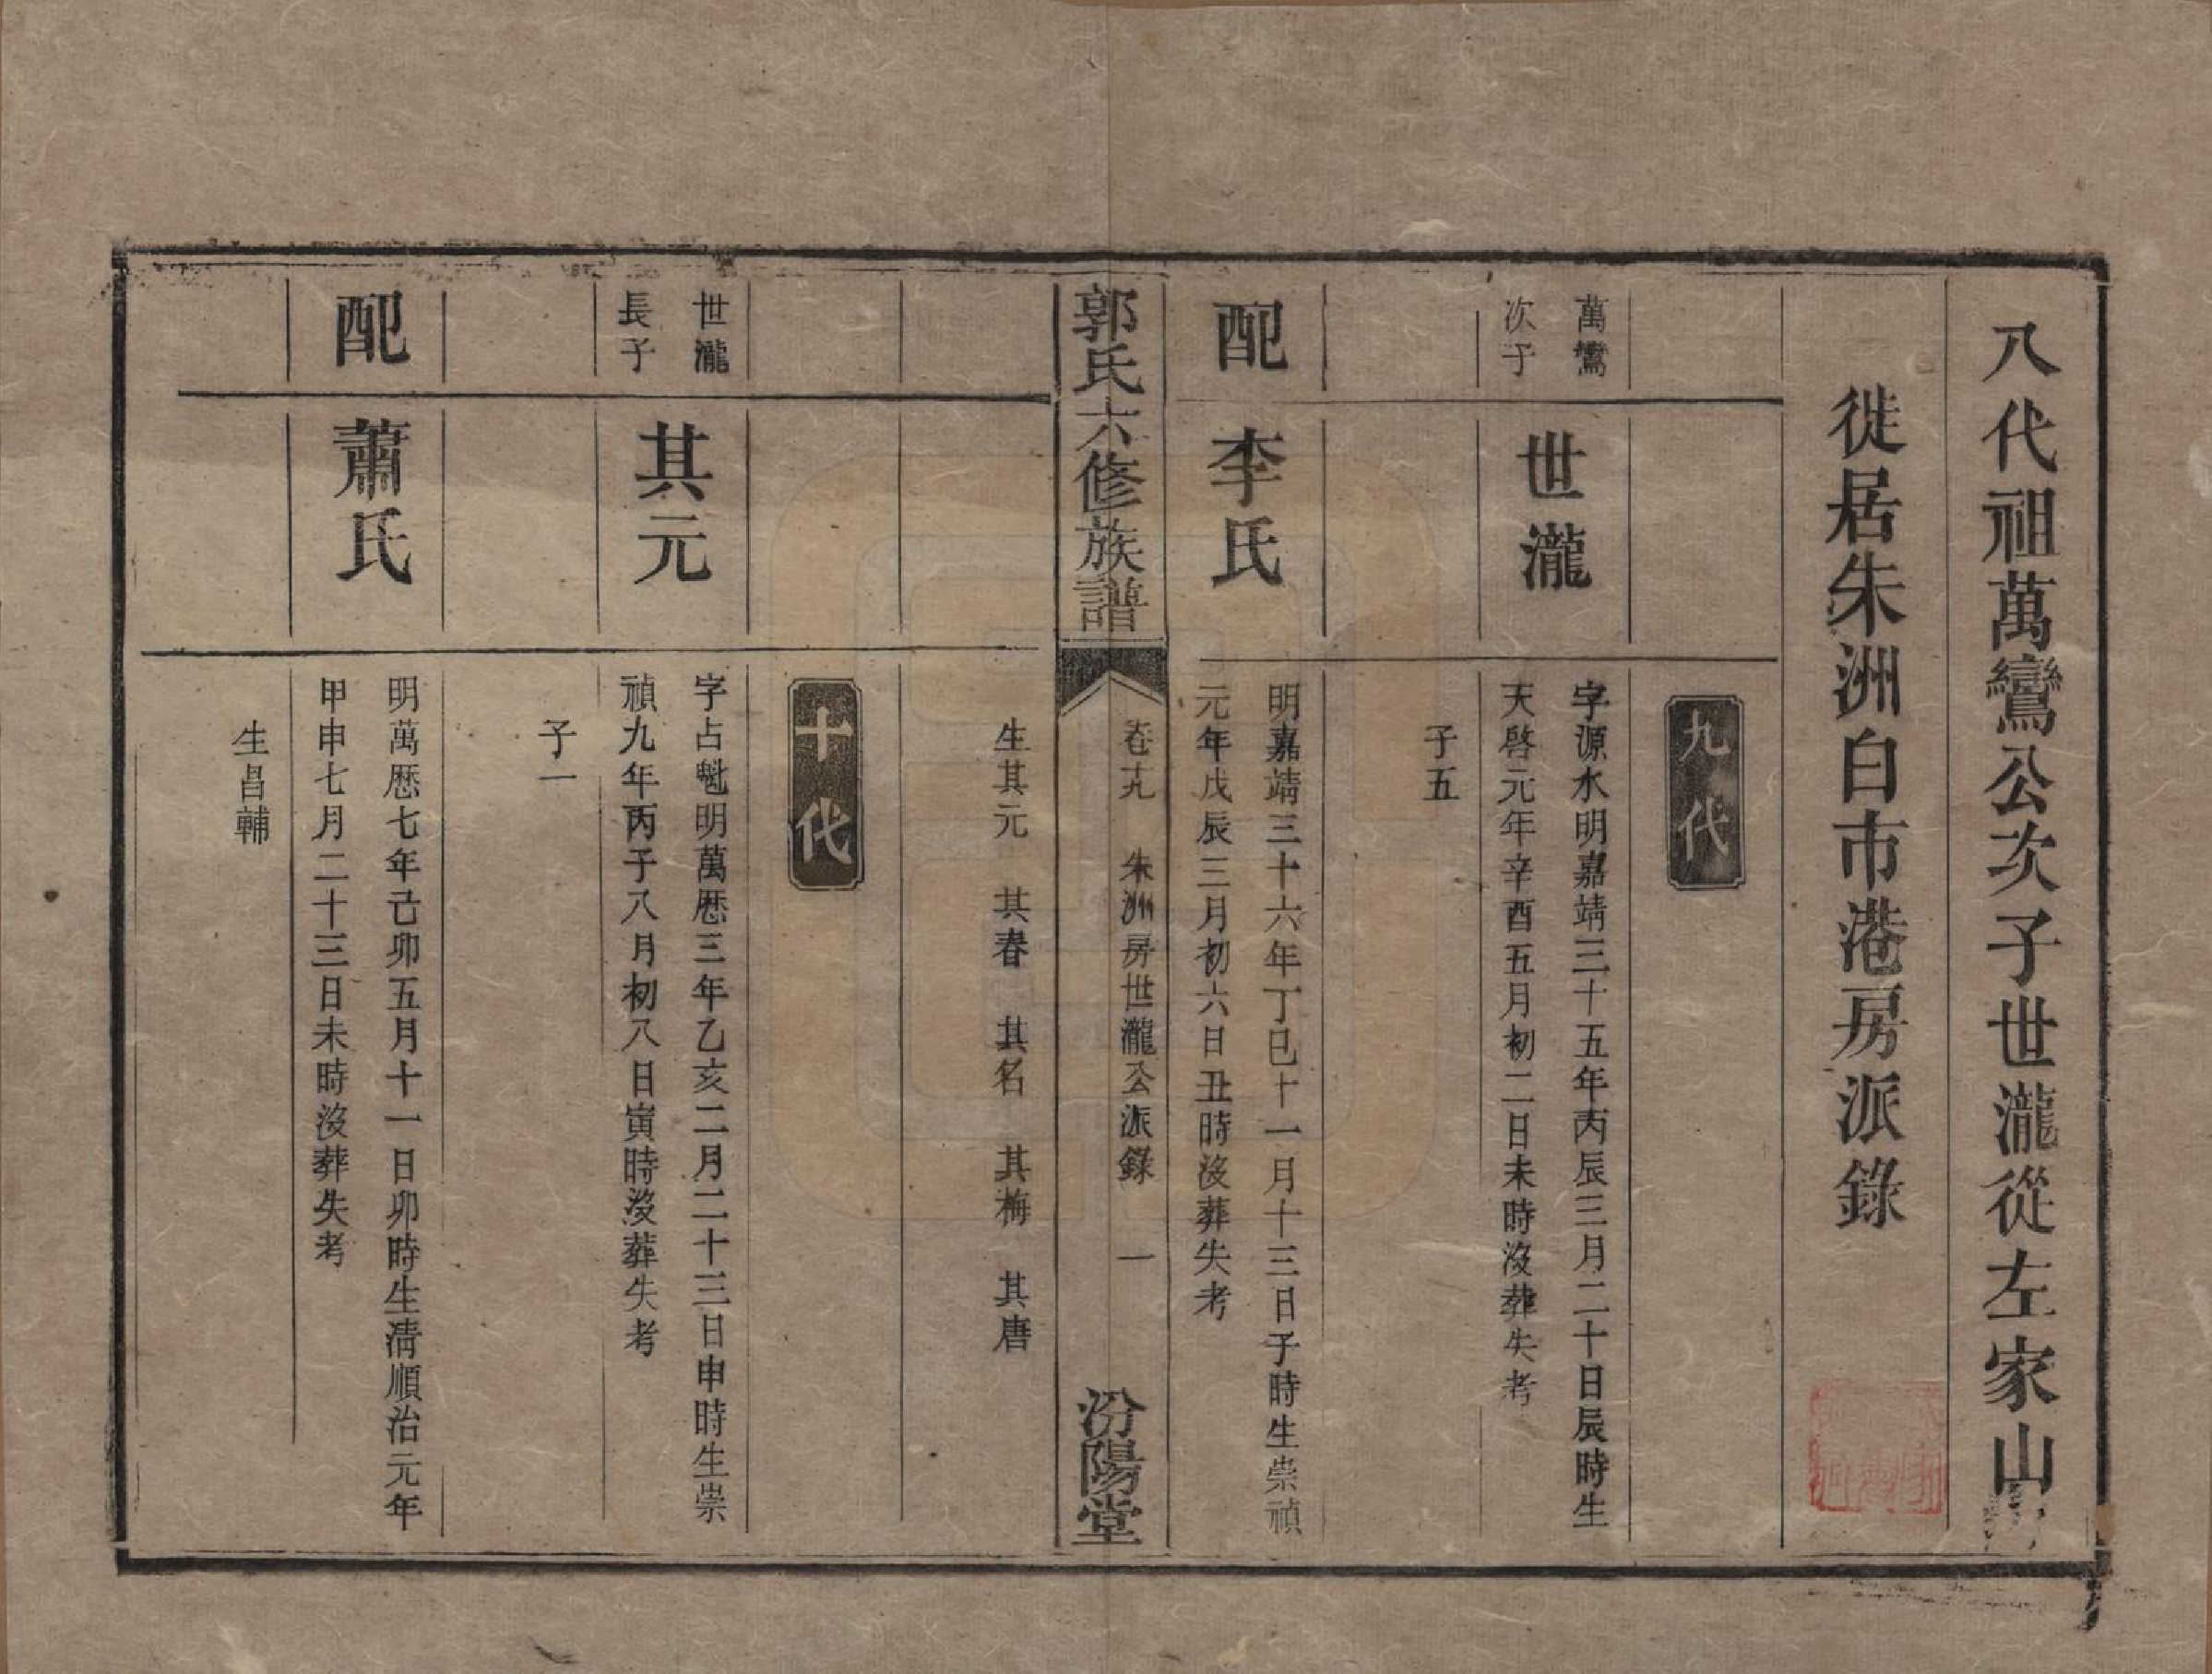 八代祖萬鸞公次子世瀧從左家山
徙居朱洲白市港房派錄
九代
萬鸞
次子
世瀧
字源水明嘉靖三十五年丙辰三月二十日辰時生
天啓元年辛酉五月初二日未時沒葬失考
子五
配
李氏
明嘉靖三十六年丁巳十一月十三日子時生崇禎
元年戊辰三月初六日丑時沒葬失考
郭氏六修族譜
卷十九 朱洲房世瀧公派錄 一
汾陽堂
生其元 其春 其名 其梅 其唐
十代
世瀧
長子
其元
字占魁明萬厯三年乙亥二月二十三日申時生崇
禎九年丙子八月初八日寅時沒葬失考
子一
配
蕭氏
明萬厯七年己卯五月十一日卯時生清順治元年
甲申七月二十三日未時沒葬失考
生昌輔